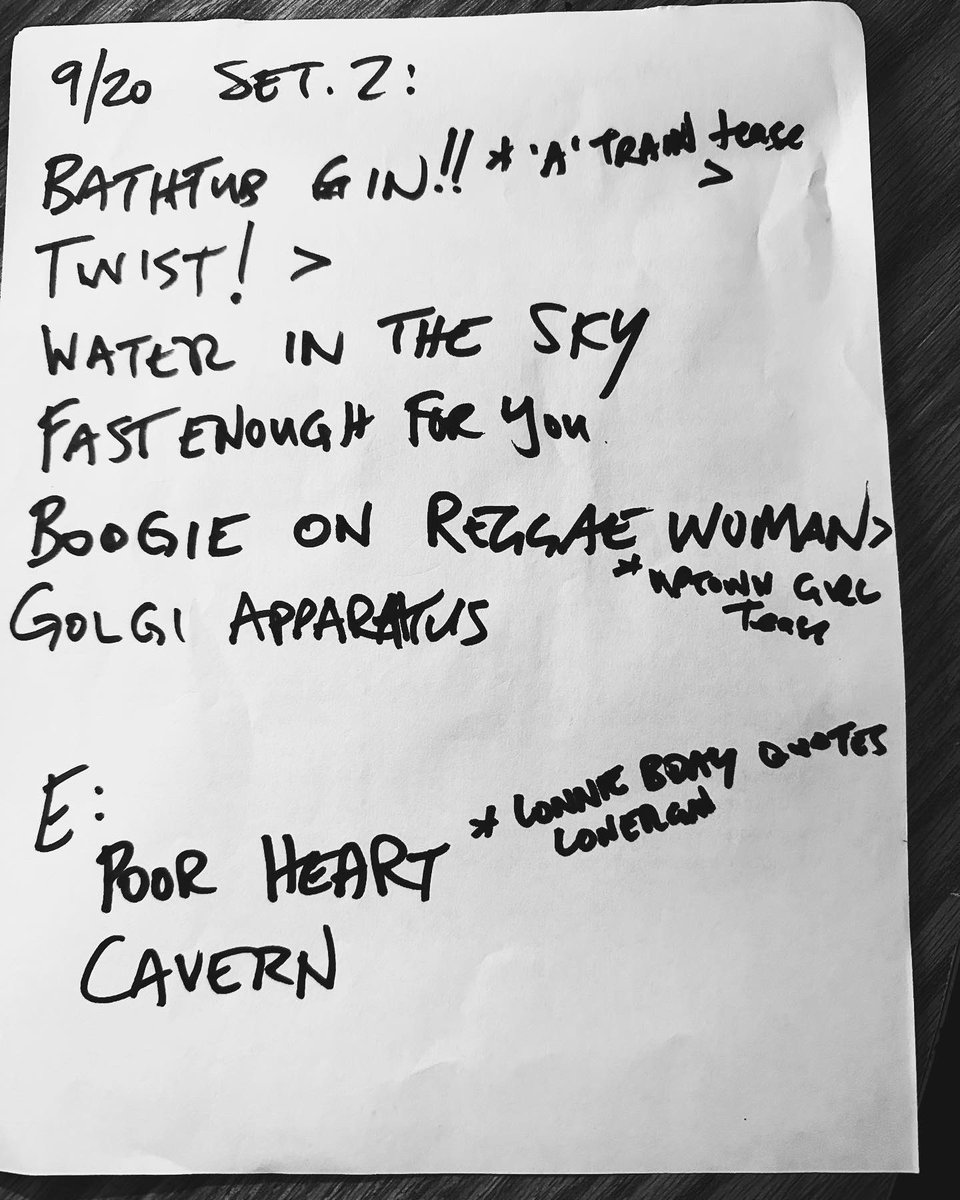 9/20 SET. 2:
BATHTUB GIN!! * 'A' TRAIN tease >
TWIST! >
WATER IN THE SKY
FAST ENOUGH FOR YOU
BOOGIE ON REGGAE WOMAN>
* UPTOWN GIRL
Tease
GOLGI APPARATUS
E:
POOR HEART * LONNIE BDAY QUOTES
LONERGAN
CAVERN